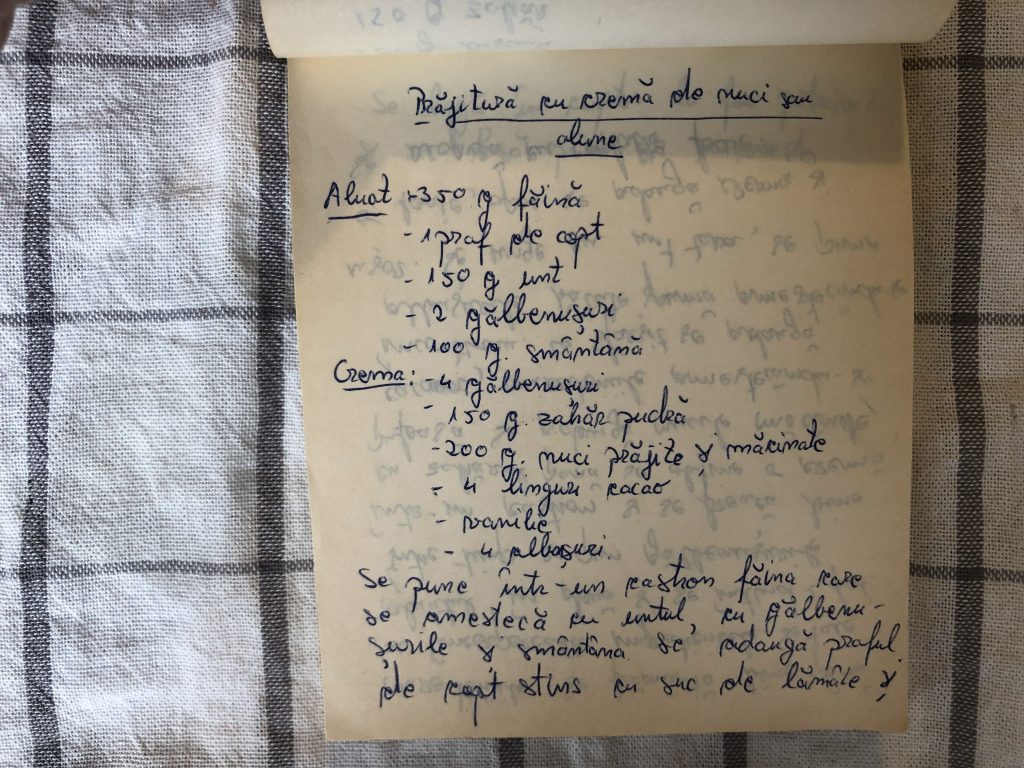 150 g zahăr
Prăjitură cu cremă de nuci sau
alune
Aluat -350 g făină
- 1 praf de copt
- 150 g unt
- 2 gălbenușuri
- 100 g. smântână
Crema: -4 gălbenușuri
- 150 g. zahăr pudră
-200 g. nuci prăjite și măcinate
- 4 linguri cacao
- vanilie
- 4 albușuri.
Se pune într-un castron făina care
se amestecă cu untul, cu gălbenu-
șurile și smântâna. Se adaugă praful
de copt stins cu suc de lămâie și